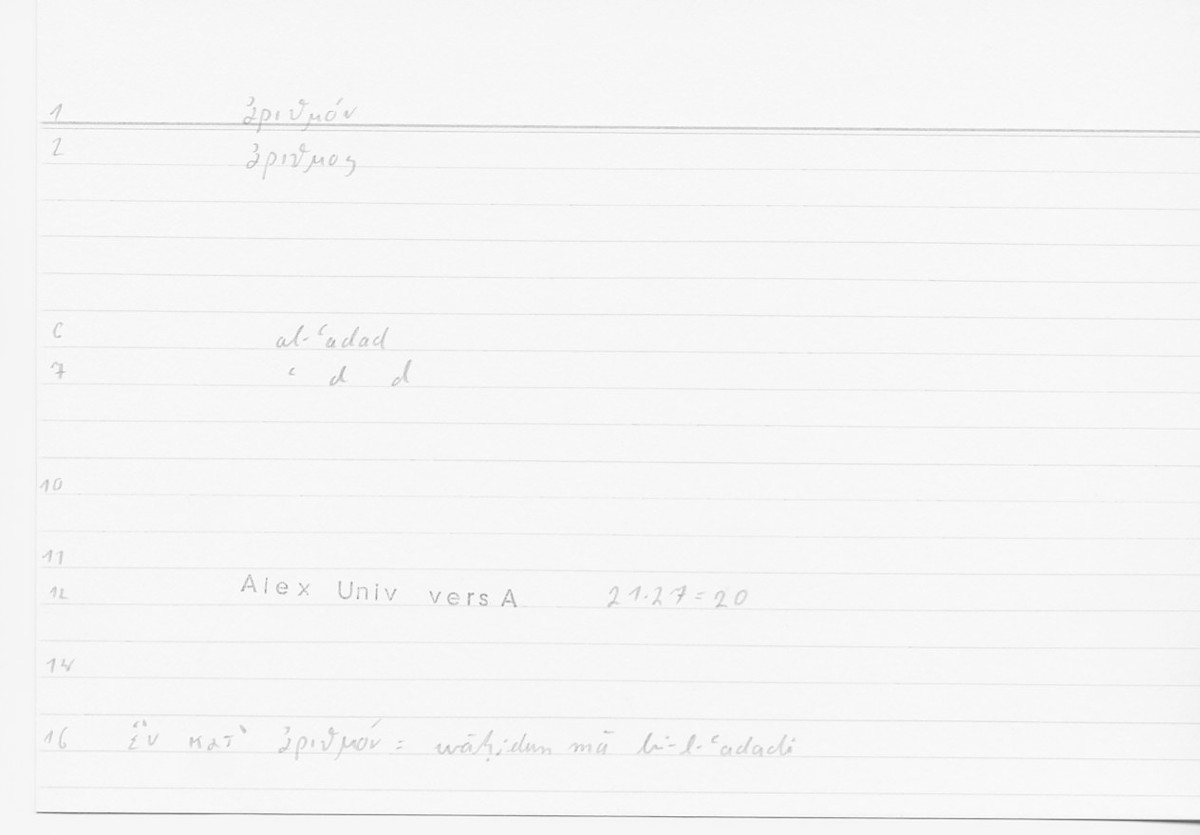 1 ἀριθμόν
2 ἀριθμος
6 al-ʿadad
7 ʿ d d
10
11
12 Alex Univ vers A 21.27=20
14
16 ἓν κατ' ἀριθμόν = wāḥidun mā bi-l-ʿadadi